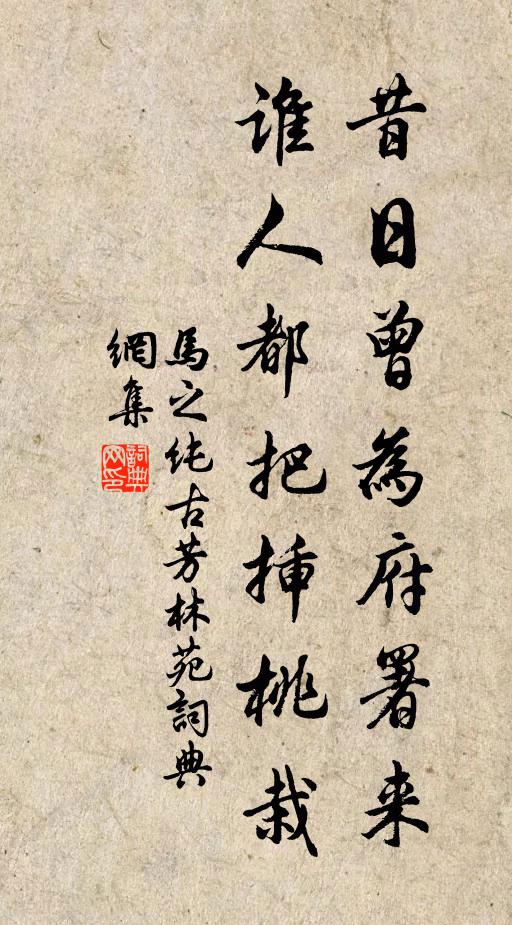 昔日曾為府署来
誰人都把揷桃栽
馬之純古芳林苑詞典
網集
詞典
网印